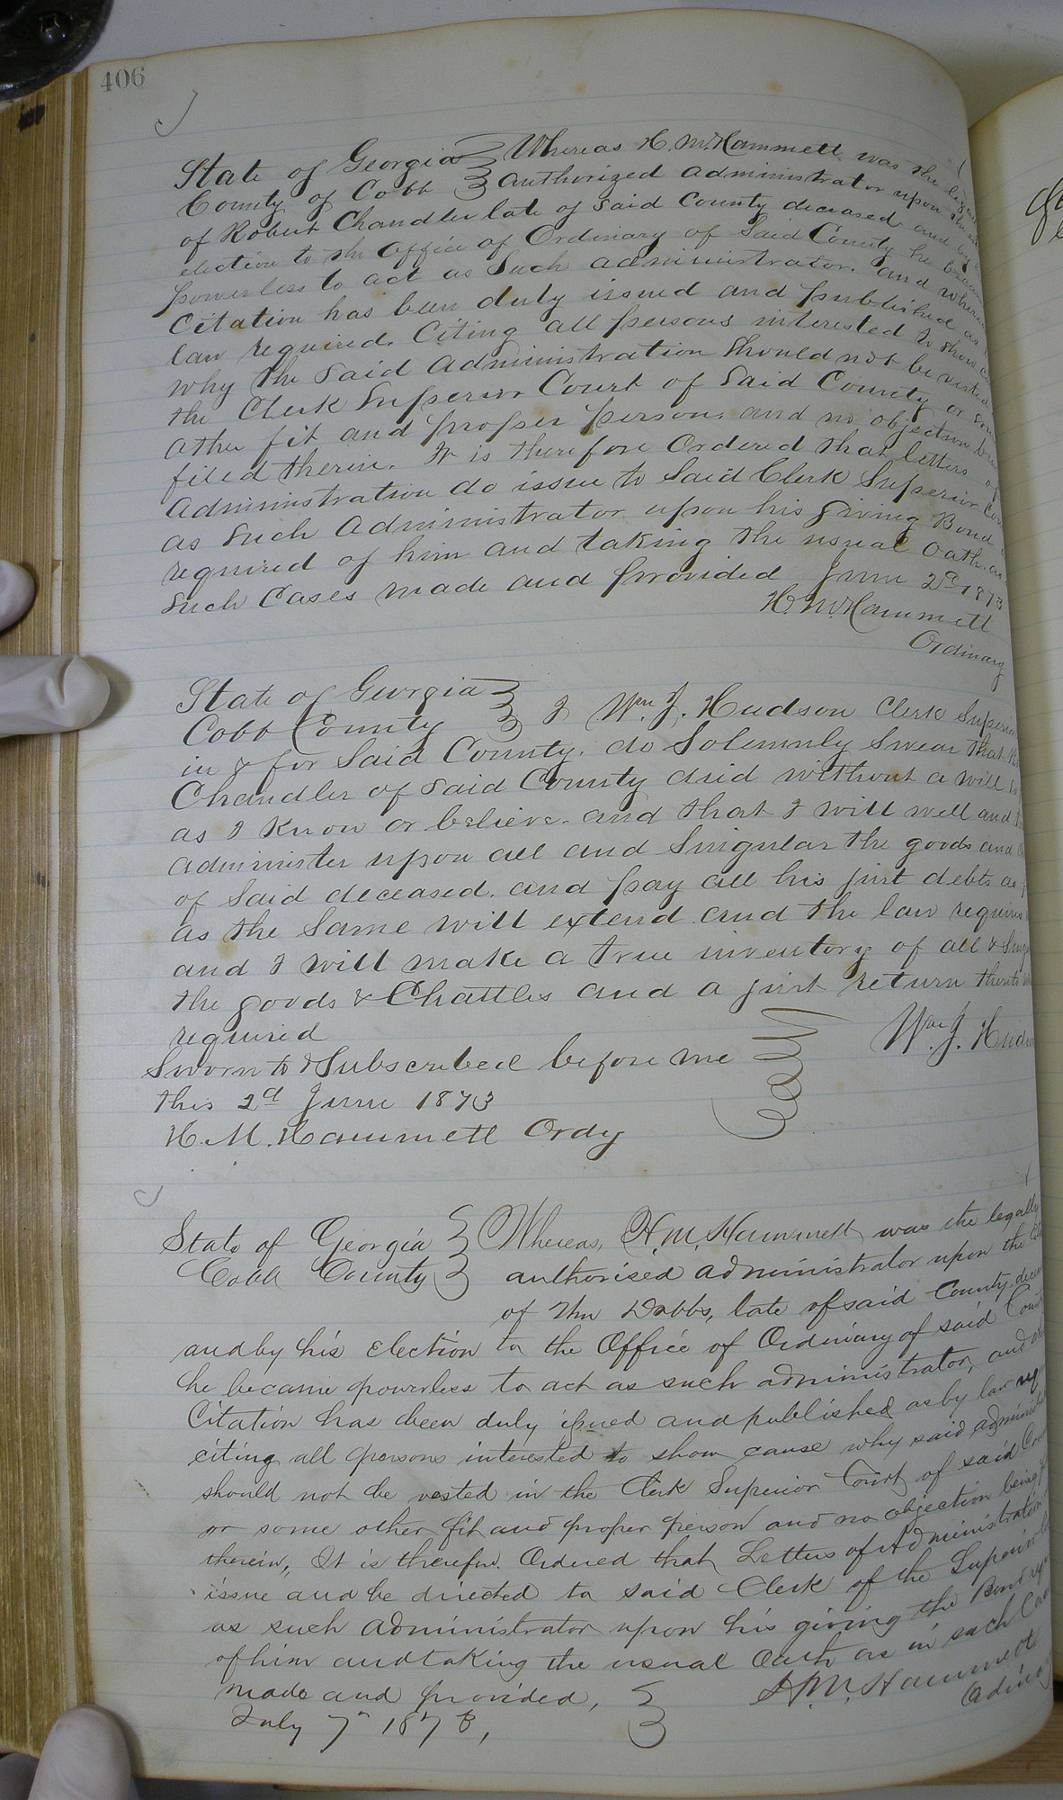 406
State of Georgia Whereas H. M. Hammett was the
County of Cobb authorized administrator upon the
of Robert Chandler late of Said County deceased and by
election to the Office of Ordinary of Said County he became
powerless to act as Such administrator. and
Citation has been duly issued and published as
law required. Citing all persons interested to show
why the Said Administration Should not be vested
the Clerk Superior Court of Said County or
other fit and proper person. and no objection
filed therein. It is therefore Ordered that letters of
Administration do issue to Said Clerk Superior
as Such Administrator upon his giving Bond
required of him and taking the usual Oath
Such Cases made and provided June 2d 1873
H. M. Hammett
Ordinary
State of Georgia
Cobb County I Wm J. Hudson Clerk
in & for Said County. do Solemnly Swear that
Chandler of Said County died without a will
as I know or believe. and that I will well and
administer upon all and Singular the goods and
of Said deceased. and pay all his just debts as
as the Same will extend and the law requires
and I will make a true inventory of all &
the goods & Chattles and a just return
required
Wm J.
Sworn to & Subscribed before me
this 2d June 1873
H. M. Hammett Ordy
State of Georgia Whereas, H. M. Hammett was the legally
Cobb County authorised administrator upon the
of Wm Dobbs, late of said County
and by his election to the Office of Ordinary of said
he became powerless to act as such administrator, and
Citation has been duly issued and published as by law
citing all persons interested to show cause why said
should not be vested in the Clerk Superior Court of said
or some other fit and proper person and no objection being
therein, It is therefore Ordered that Letters of Administration
issue and be directed to said Clerk of the
as such administrator upon his giving the Bond
of him and taking the usual Oath as in such
made and provided, H. M. Hammett
July 7th 1873,